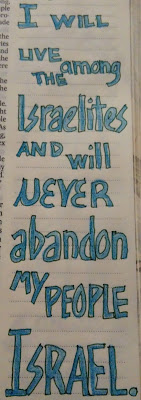 I WILL
LIVE among
THE
Israelites
AND will
NEVER
abandon
MY PEOPLE
ISRAEL.